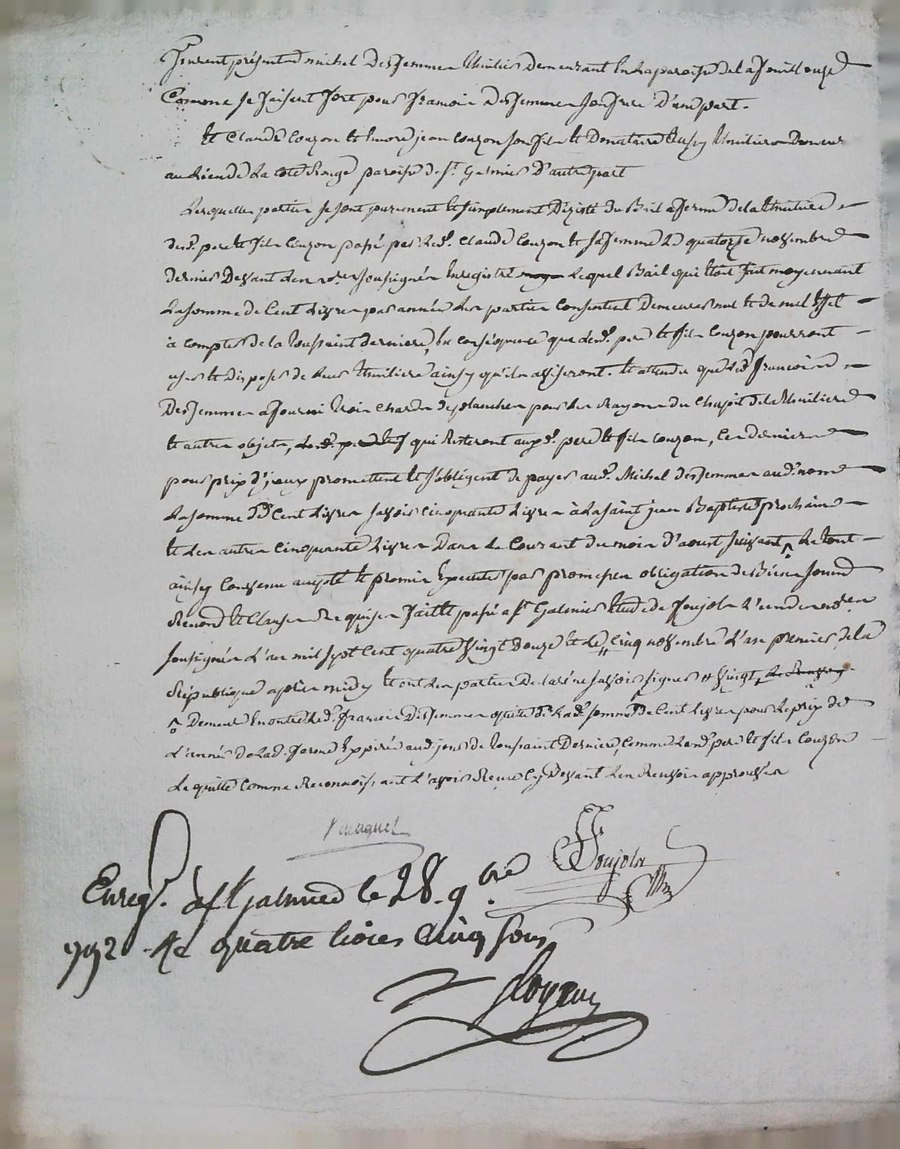 Furent présents michel Desjemmes thuilier demeurant En la paroisse de la fouillouze
Comme se faisant fort pour francois desjemmes son frere D'une part.
Et Claude Couzon et honoré jean Couzon son fils et Donataire aussy thuiliers Demeur
au lieu de La Cote Rouge paroisse de st. Galmier D'autre part
Lesquelles parties se sont purement et simplement Dezisté du Bail a ferme de la thuiliere
desd. pere et fils Couzon passé par led. Claude Couzon et sa femme Le quatorze novembre
dernier Devant Les nores soussignés Enregistré Lequel Bail qui Etoit fait moyennant
La somme de Cent Livres par année Les parties Consentent Demeurer nul et de nul Effet
à compter de la toussaint derniere, En conséquence que lesd. pere et fils Couzon pourront
user et disposer de leur thuiliere ainsy qu'ils aviseront. Et attendu que led. francois
Desjemmes a fourni trois Chards de planches pour les Rayons du Chapit de la thuiliere
et autres objets, qui Resteront auxd. pere et fils Couzon, Ces derniers
pour prix d'iceux promettent et s'obligent de payer aud. Michel desjemmes aud. nom
La somme de Cent Livres savoir cinquante Livres à La saint jean Baptiste prochaine
et Les autres Cinquante Livres Dans le Courant du mois d'aoust suivant, ^ Le tout
ainsy Convenu accepté et promis Executer par promesses obligation de Biens soumd
Renond et Clauses Requises faitte passé a st Galmier Etude de Poujola L'un des nores
soussignés L'an mil sept Cent quatre Vingt Douze et Le Cinq novembre L'an premier de la
République après midy et ont Les parties Déclaré ne savoir signer # Vingt,
^ Demeure En outre led. francois Desjemmes quitte de Lad. somme de Cent Livres pour le prix de
L'année de Lad. ferme Expirée au jour de toussaint Derniere Comme Lesd. pere et fils Couzon
Le quitte Comme Reconnoissant L'avoir Reçue Cy Devant Les Renvoir approuvés
Poujola
Enregé. à St Galmier le 28. 9bre
1792 Re quatre livres Cinq sous